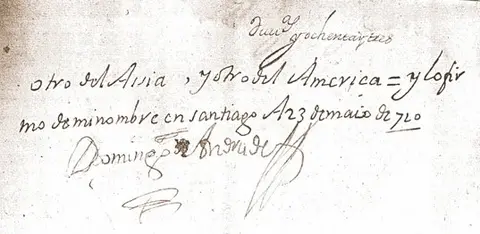 y ochenta y tres
otro del Assia, y otro del America = y lo fir
mo de mi nombre en santiago A 23 de maio de 710
Domingo de Andrade